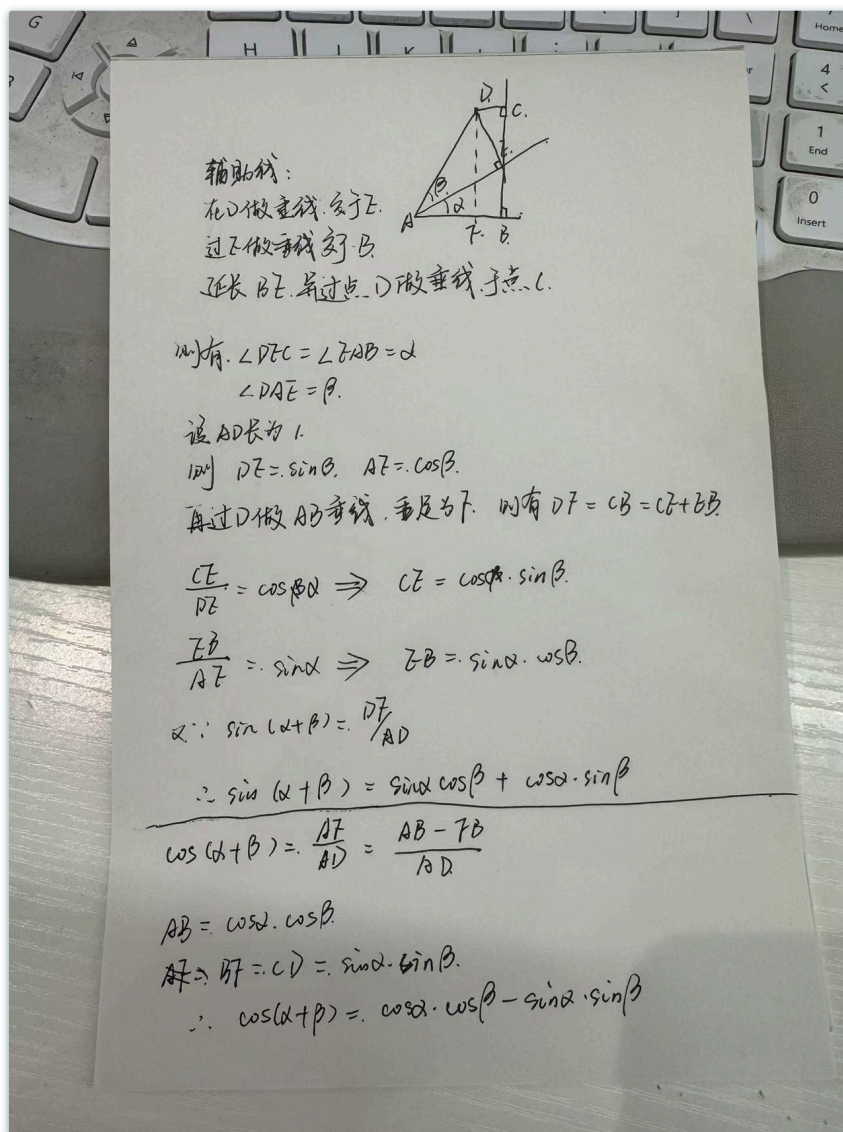 G
H
J
K
L
Home
4
<
1
End
0
Insert
D.
C.
E
β
α
A
F.
B.
辅助线:
在D做垂线.交于E.
过E做垂线交于.B.
延长BE.并过点D做垂线于点C.
则有.∠DEC=∠EAB=α
∠DAE=β.
设AD长为1.
则 DE=sinβ. AE=cosβ.
再过D做AB垂线,垂足为F. 则有DF=CB=CE+EB.
CE/DE=cosα ⇒ CE=cosα·sinβ.
EB/AE=sinα ⇒ EB=sinα·cosβ.
又∵ sin(α+β)=DF/AD
∴ sin(α+β)=sinαcosβ+cosα·sinβ
cos(α+β)=AF/AD=(AB-FB)/AD.
AB=cosα.cosβ.
BF=CD=sinα·sinβ.
∴ cos(α+β)=cosα·cosβ-sinα·sinβ